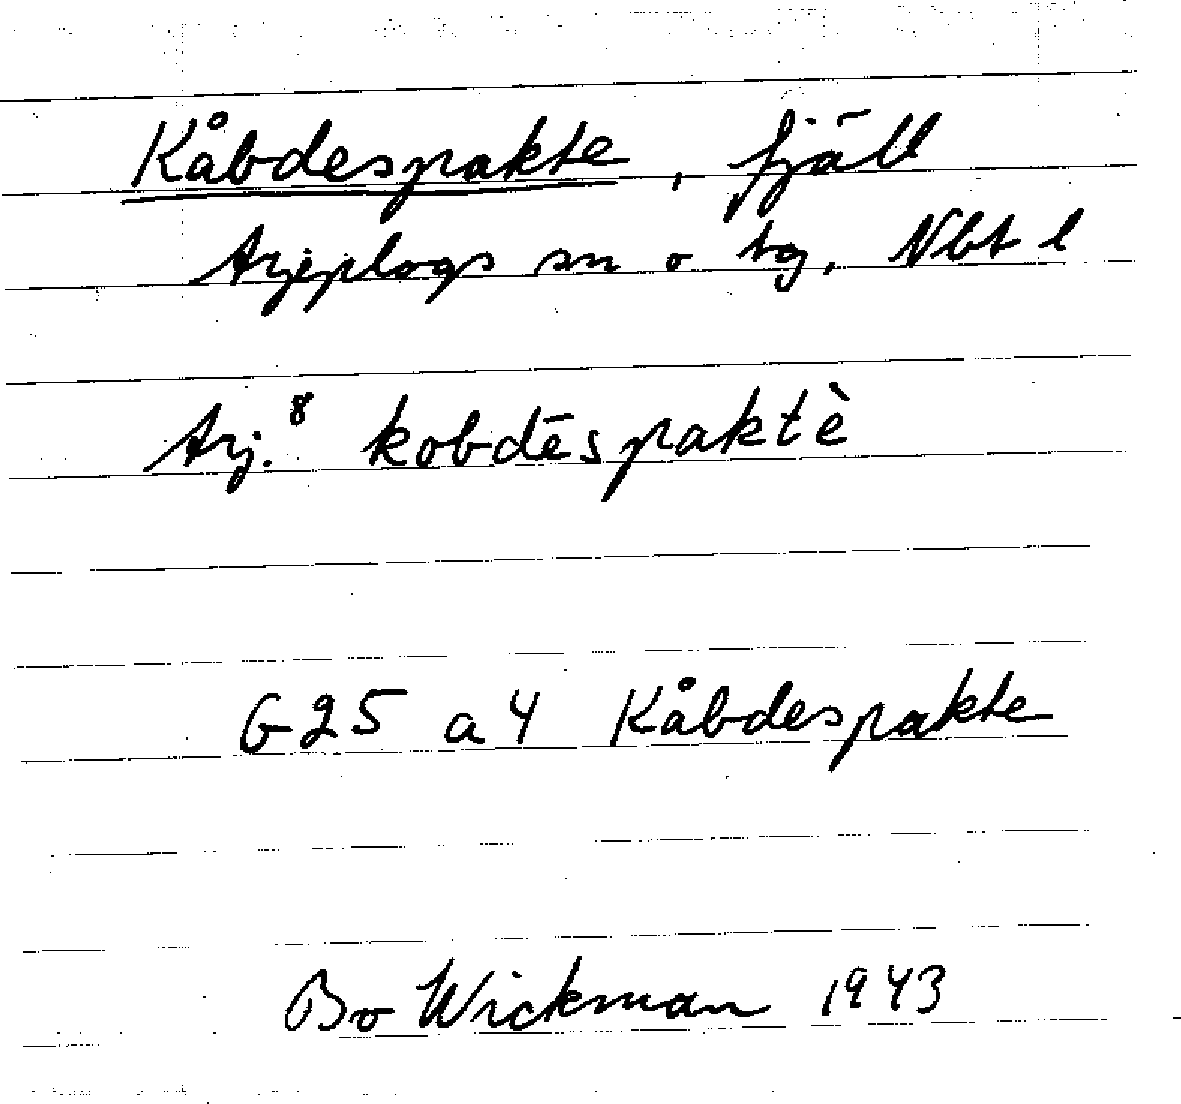 Kåbdespakte, fjäll
Arjeplogs sn o tg, Nbt l
Arj.⁸ kobdēspaktè
G25 a 4 Kåbdespakte
Bo Wickman 1943